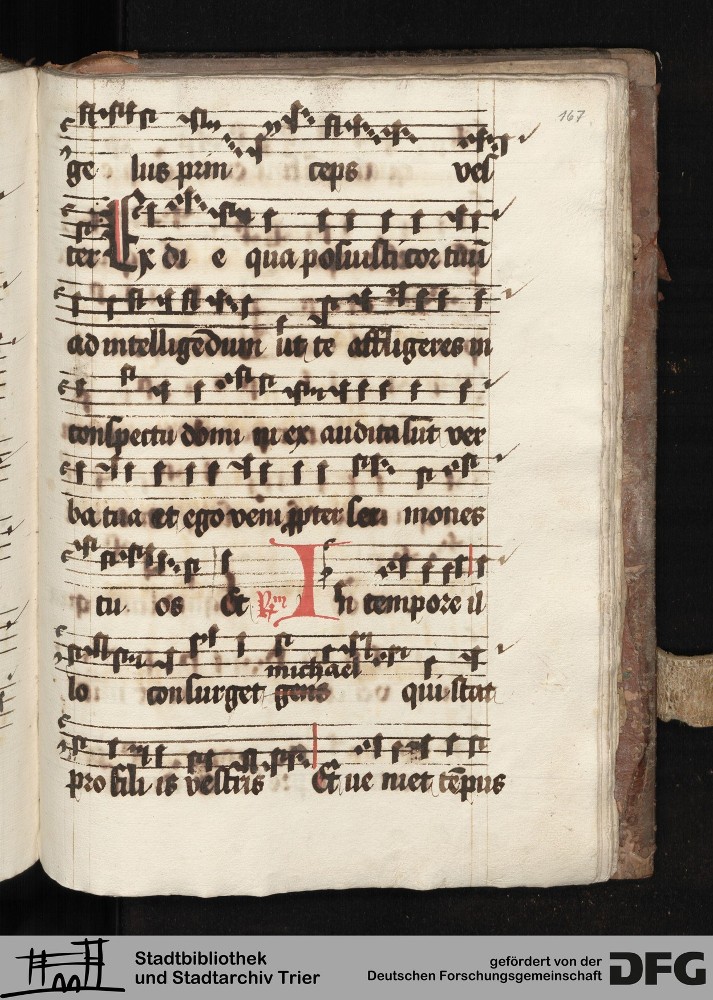 167
ge lus prin ceps ves
ter Ex di e qua posuisti cor tuū
ad intelligēdum ut te affligeres in
conspectu domi ex audita sūt ver
ba tua et ego veni ꝓpter ser mones
tu os Et In tempore il
michael
lo consurget gens qui stat
pro fili is vestris Et ve niet tēpus
Stadtbibliothek
und Stadtarchiv Trier
gefördert von der
Deutschen Forschungsgemeinschaft
DFG